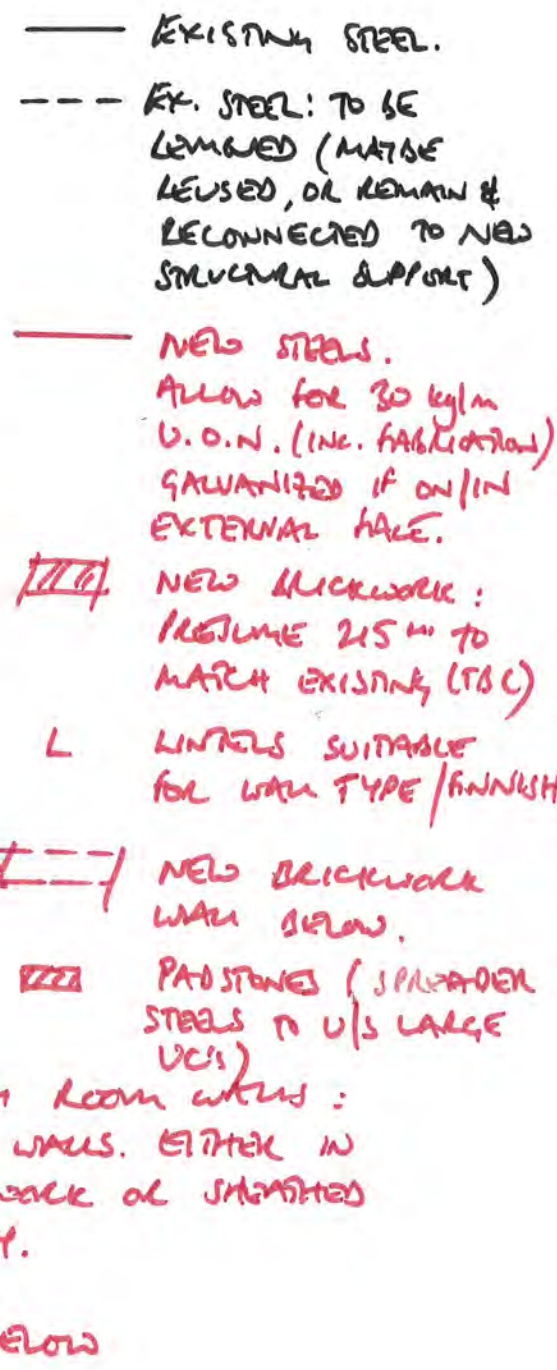 EXISTING STEEL.
EX. STEEL: TO BE
REMOVED (MAYBE
REUSED, OR REMAIN &
RECONNECTED TO NEW
STRUCTURAL SUPPORT)
NEW STEELS.
ALLOW FOR 30 kg/m
U.O.N. (INC. FABRICATION)
GALVANIZED IF ON/IN
EXTERNAL FACE.
NEW BRICKWORK:
PRESUME 215mm TO
MATCH EXISTING (TBC)
L LINTELS SUITABLE
FOR WALL TYPE/FINNISH
NEW BRICKWORK
WALL BELOW.
PADSTONES (SPREADER
STEELS TO U/S LARGE
UC's)
ROOM WALLS:
WALLS. EITHER IN
WORK OR SHEATHED
ELOW